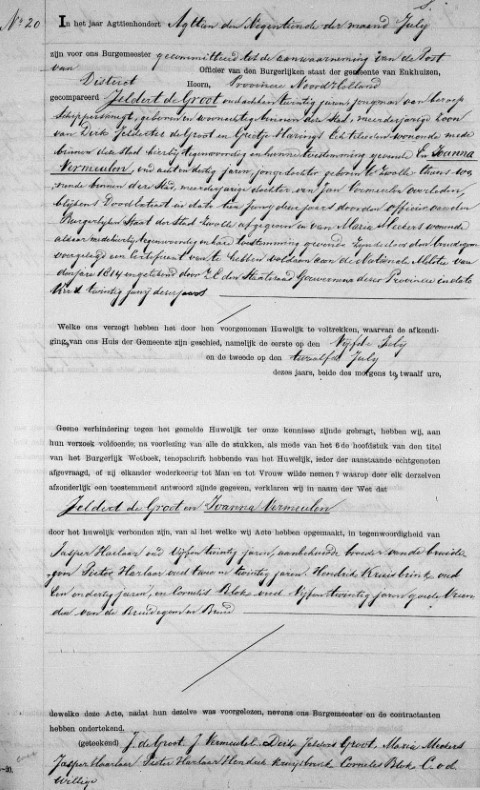 No 20
In het jaar Agttienhondert Agttien den Negentiende der maand July
zijn voor ons Burgemeester gecommitteerd tot de aanwaarneming van de Post
van Officier van den Burgerlijken staat der gemeente van Enkhuizen,
District Hoorn, Provincie Noord Holland
gecompareerd Jeldert de Groot oud achtentwintig jaren, jongman van beroep
Schippersknegt, geboren en woonachtig binnen deze Stad, meerderjarige Zoon
van Dirk Jelderts de Groot en Grietje Harings Echtelieden wonende mede
binnen deze Stad hierbij tegenwoordig en hunne toestemming gevende En Joanna
Vermeulen, oud acht en dertig jaren, jongedochter geboren te Zwolle thans wo-
nende binnen deze Stad, meerderjarige dochter van Jan Vermeulen overleden,
blijkens Doodbetaal in dato tien Juny dezes jaars door den officier van den
Burgerlijken Staat der Stad Zwolle afgegeven en van Maria Meders wonende
aldaar mede hierbij tegenwoordig en hare toestemming gevende Zynde door den bruidegom
voorgelegd een Certificaat van te hebben voldaan aan de Nationale Militie van
den jare 1814 uitgetekend door Z.E. den Staatsraad Gouverneur dezer Provincie in dato
twintig juny dezes jaars
Welke ons verzogt hebben het door hen voorgenomen Huwelijk te voltrekken, waarvan de afkondi-
ging van ons Huis der Gemeente zijn geschied, namelijk de eerste op den Vijfde July
en de tweede op den twaalfde July
dezes jaars, beide des morgens te twaalf ure,
Geene verhindering tegen het gemelde Huwelijk ter onze kennisse zijnde gebragt, hebben wij, aan
hun verzoek voldoende, na voorlezing van alle de stukken, als mede van het 6de hoofdstuk van den titel
van het Burgerlijk Wetboek, tenopschrift hebbende van het Huwelijk, ieder der aanstaande echtgenoten
afgevraagd, of zij elkander wederkeerig tot Man en tot Vrouw wilde nemen? waarop door elk derzelven
afzonderlijk een toestemmend antwoord zijnde gegeven, verklaren wij in naam der Wet dat
Jeldert de Groot en Joanna Vermeulen
door het huwelijk verbonden zijn, van al het welk wij Acte hebben opgemaakt, in tegenwoordigheid van
Jasper Harlaar oud vijfen twintig jaren, aanbehuwde broeder van de bruide-
gom Pieter Harlaar oud twee en twintig jaren. Hendrik Kruisbrink oud
een en dertig jaren, en Cornelis Blok oud Vijfen twintig jaren goede Vrien-
den van de Bruidegom en Bruid
dewelke deze Acte, nadat hun dezelve was voorgelezen, nevens ons Burgemeester en de contractanten
hebben ondertekend.
(geteekend) J. de Groot J Vermeulen Dirk Jelders Groot. Maria Meders
Jasper Haarlaar Pieter Harlaar Hendrik Kruysbrink Cornelis Blok C. v d.
Willige